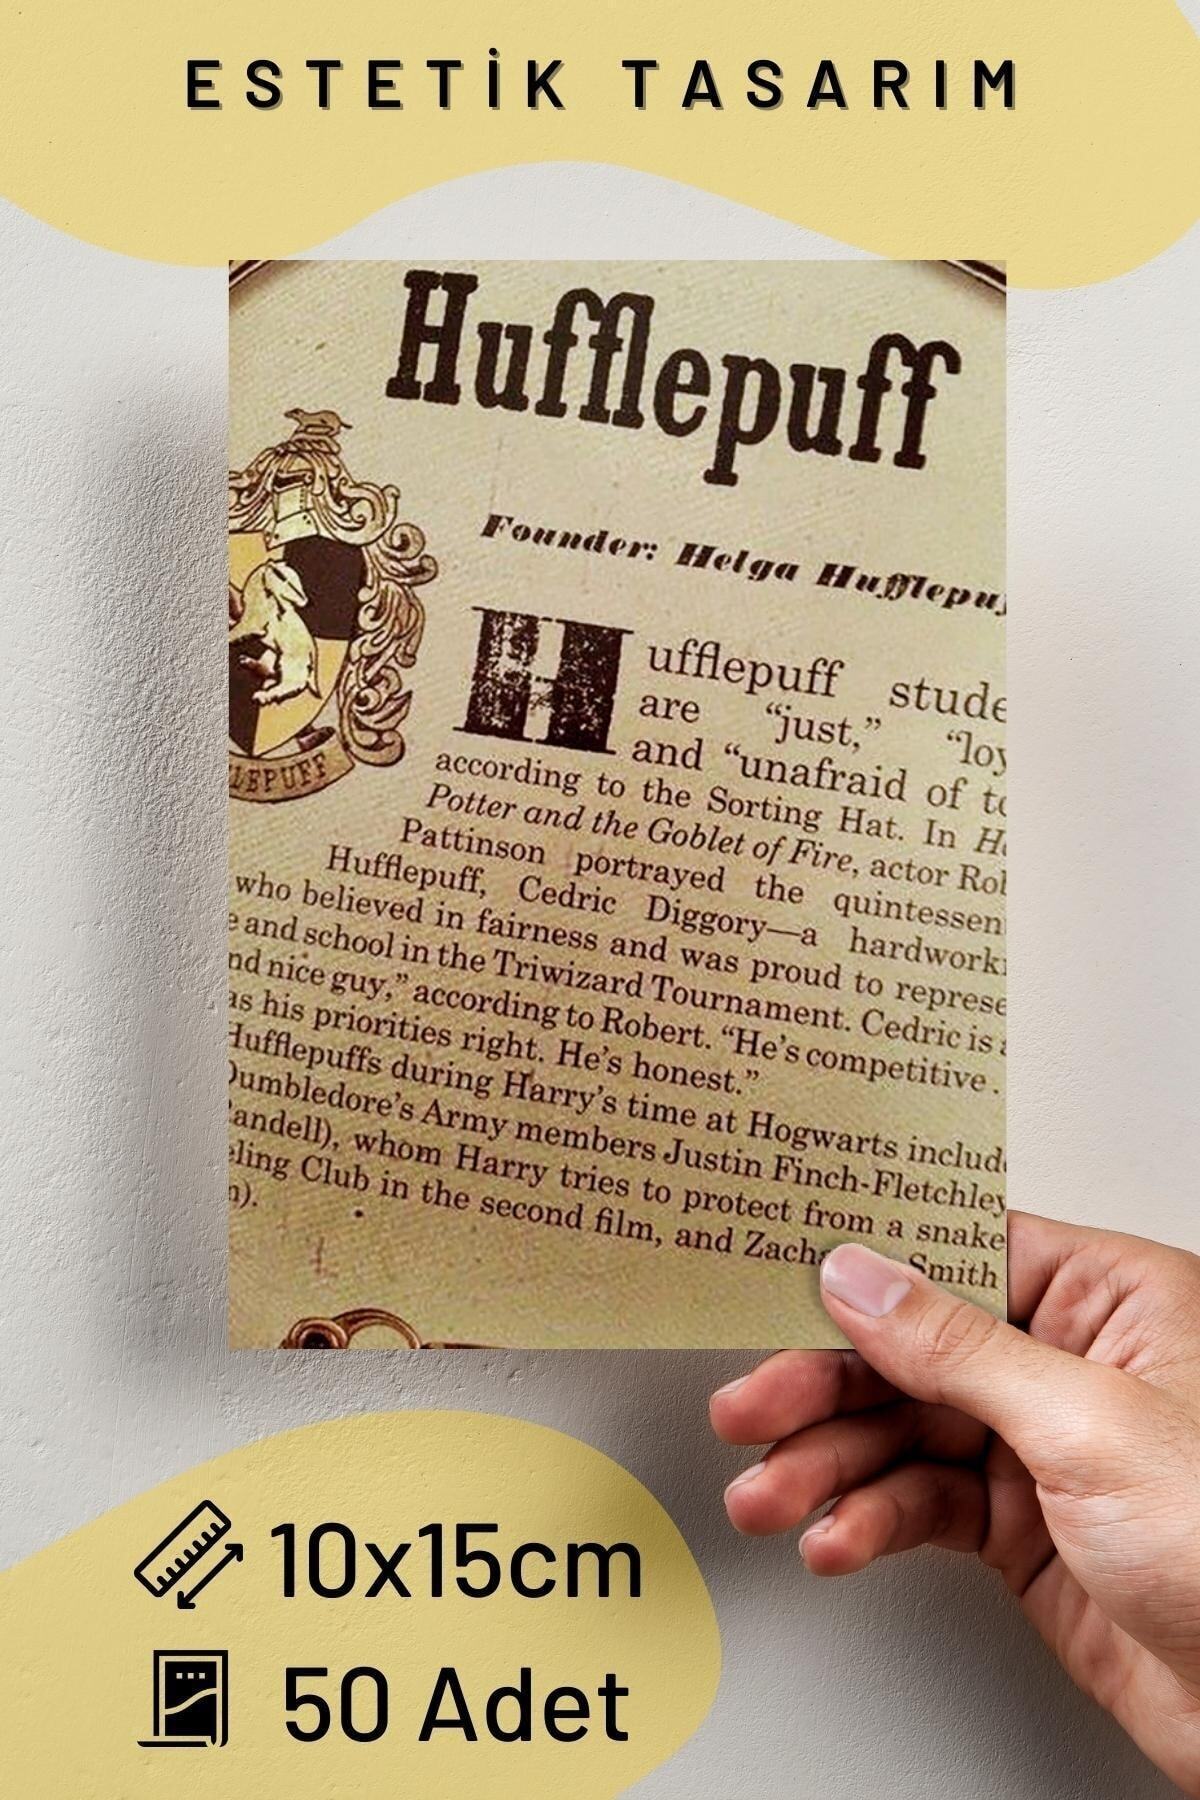 ESTETİK TASARIM
Hufflepuff
Founder: Helga
LEPUFF
Hufflepuff
are “just,”
and “unafraid of
according to the Sorting Hat. In
Potter and the Goblet of Fire, actor
Pattinson portrayed the
Hufflepuff, Cedric Diggory—a
who believed in fairness and was proud to
and school in the Triwizard Tournament. Cedric is
nice guy,” according to Robert. “He’s competitive .
his priorities right. He’s honest.”
Hufflepuffs during Harry’s time at Hogwarts
Dumbledore’s Army members Justin Finch-Fletchley
whom Harry tries to protect from a snake
Club in the second film, and Smith
10x15cm
50 Adet